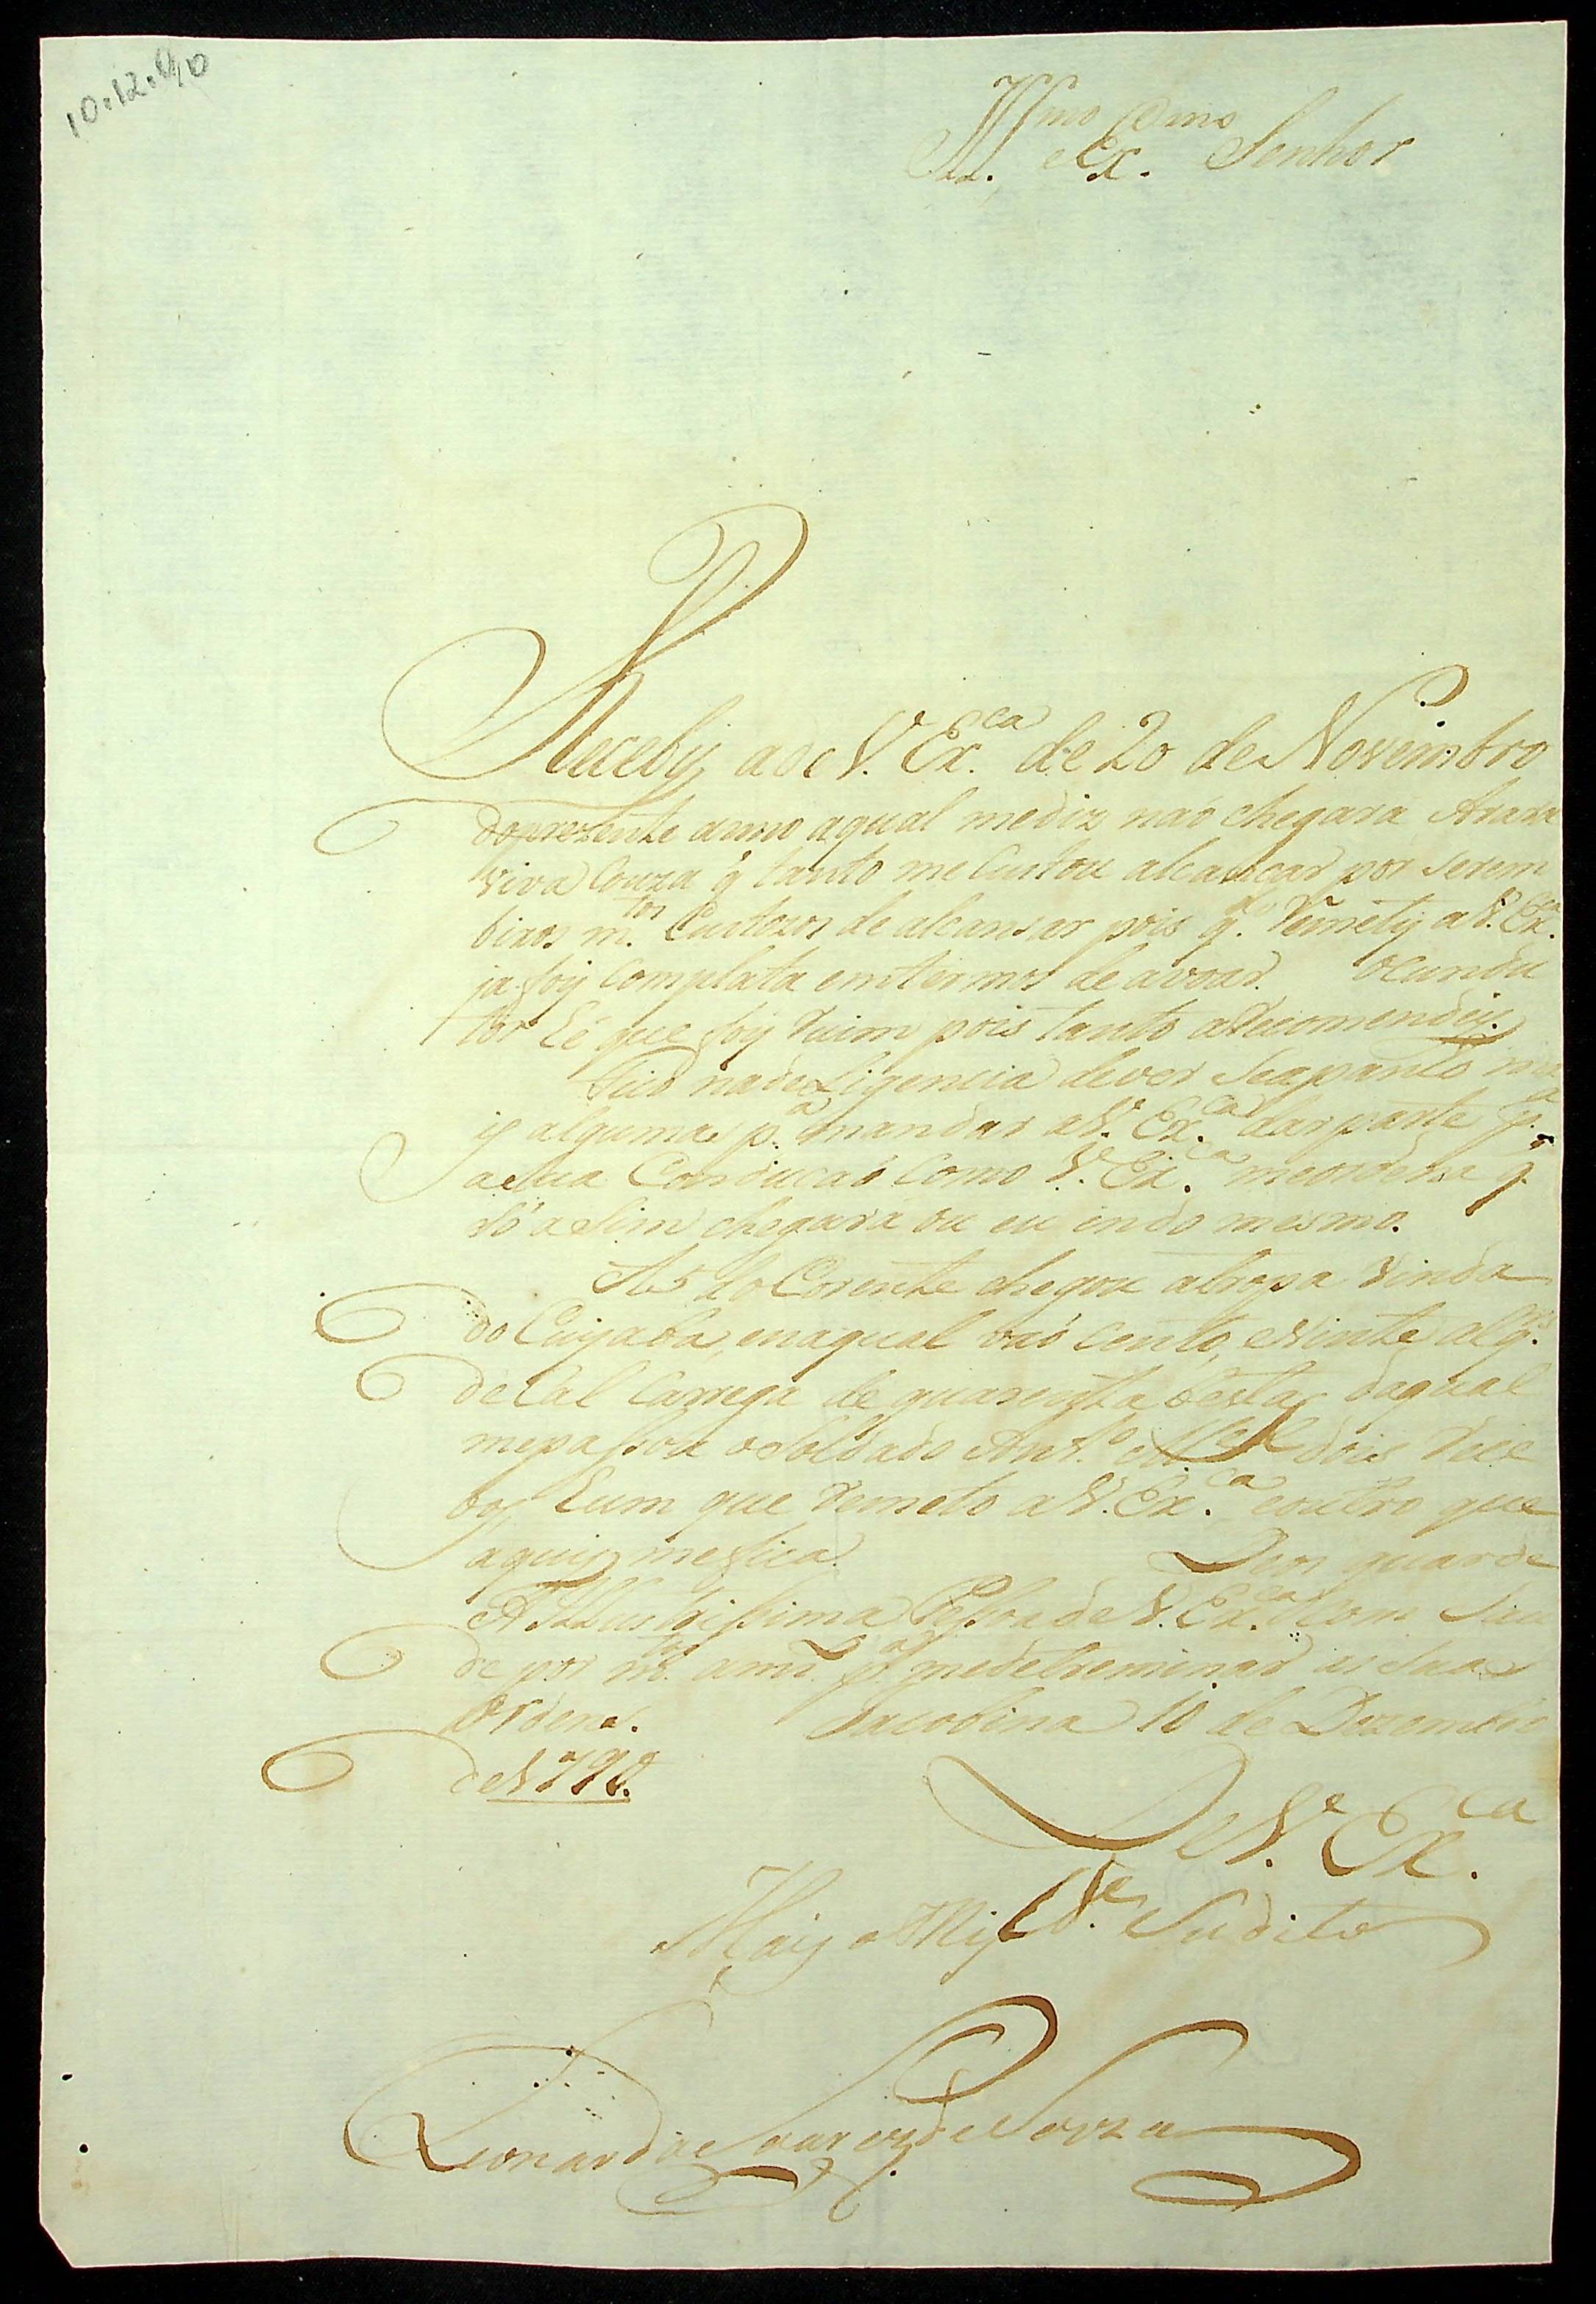 10.12.90
Ill.mo e Ex.mo Senhor
Receby a de V.Ex.ca de 20 de Novembro
do prezente anno a qual me diz naó chegara Arara
viva Couza q̃ tanto me Custou alcançar por serem
bixos m.tos Custozos de alcansar pois q.do Remety a V.Ex.ca
ja foy complata em termos de avoar. O Cundu
tor hé que foy Ruim pois tanto a Recomendey.
Fico na deLigencia de ver se apanho ma
is alguma p.a mandar a V.e Ex.ca dar parte p.a
a sua Conducaó como V.e Ex.ca me ordena q.
só a sim chegara ou eu indo mesmo.
A 5 do Corente chegou a tropa vinda
do Cuyaba, e na qual vaó cento, e vinte alq.es
de Cal carrega de quarenta bestas da qual
me passou o Soldado Ant.o dois Reci
bos, hum que Remeto a V.Ex.ca e outro que
aquy me fica. Deos guarde
A Illustrissima Pessoa de V.Ex.ca com Sau
de por m.tos annos p.a me detreminar as suas
Ordens. Jacobina 10 de Dezembro
de 1790.
De V.e Ex.ca
Mais Sudito
Leonardo Soares de Souza